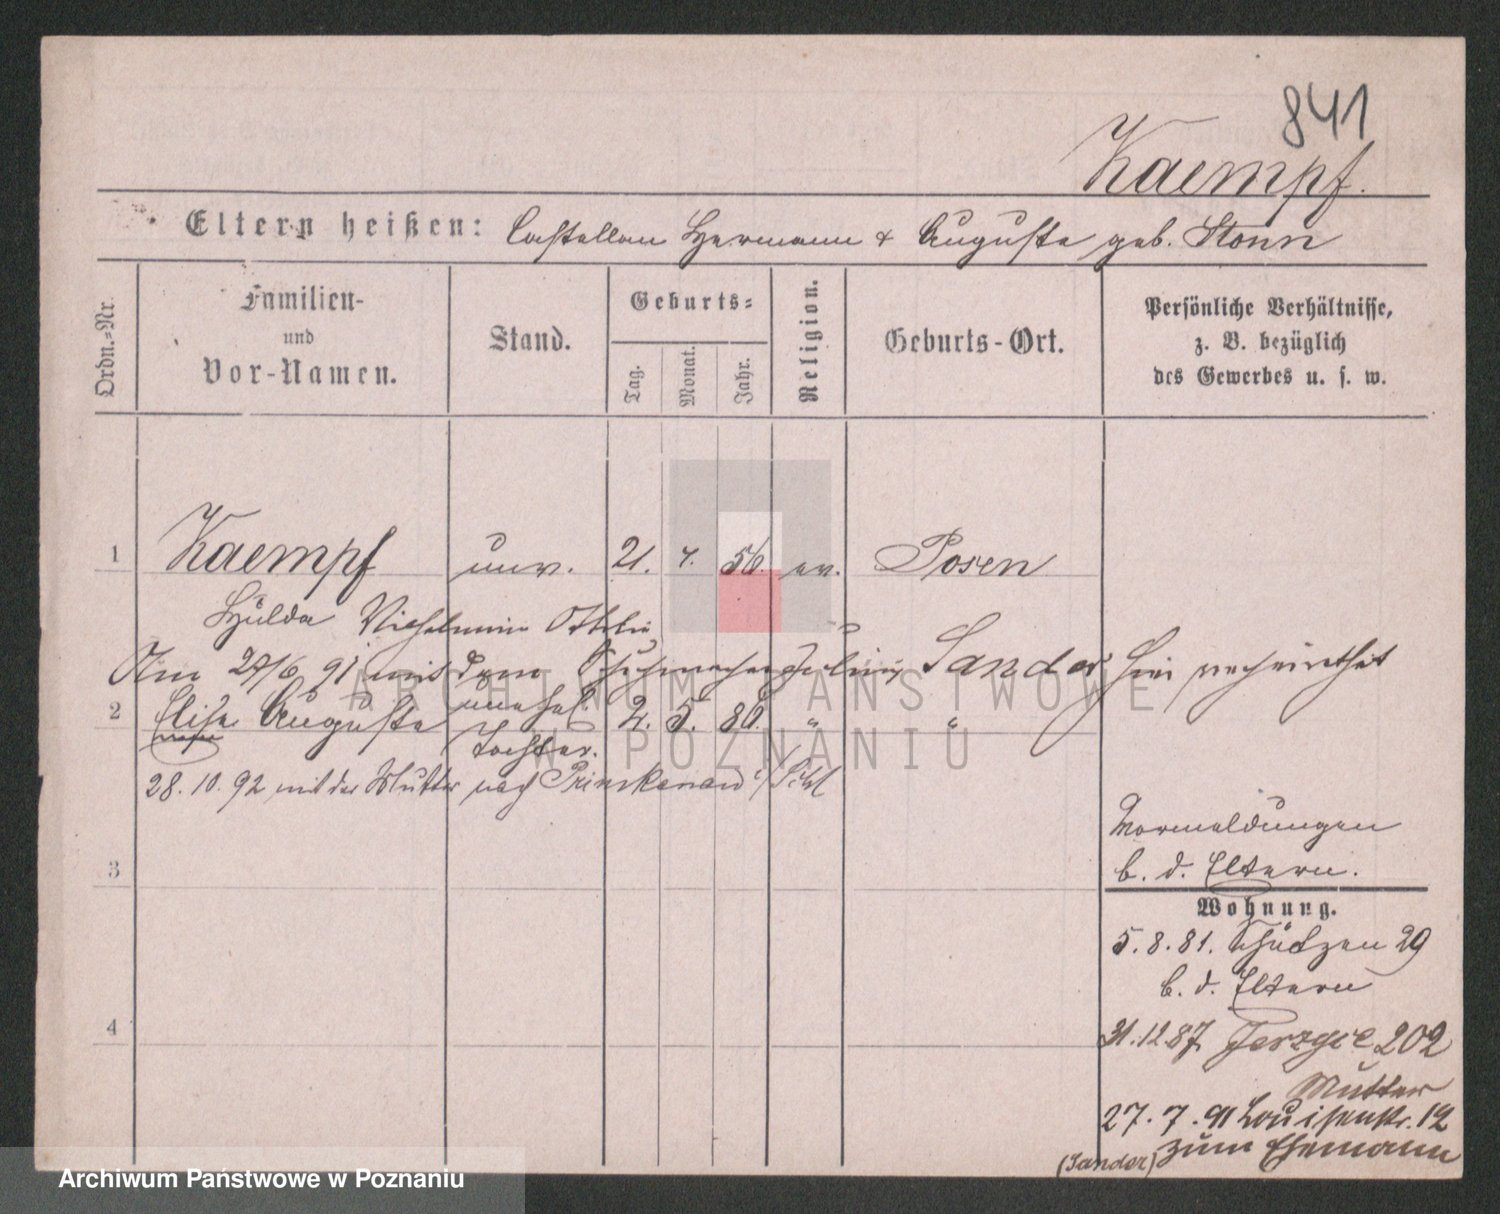 841
Kaempf.
Eltern heißen: Castellan Hermann & Auguste geb. Stonn
Ordn.-Nr.
Familien-
und
Vor-Namen.
Stand.
Geburts-
Tag.
Monat.
Jahr.
Religion.
Geburts-Ort.
Persönliche Verhältnisse,
z. B. bezüglich
des Gewerbes u. s. w.
1 Kaempf unv. 21. 4. 56. ev. Posen
Hulda Wilhelmine Ottilie
Am 27/6 91 mit dem Schuhmacher Julius Sander hier verheirathet
2 Elise Auguste unehel. 2. 5. 86. " "
Tochter.
28. 10. 92 mit der Mutter nach Prinkenau
Vormeldungen
b. d. Eltern.
3
Wohnung.
5. 8. 81. Schützen 29
b. d. Eltern
4
31.12.87. 202
Mutter
27. 7. 91 Louisenstr. 12
(Sander) zum Ehemann
ARCHIWUM PAŃSTWOWE
W POZNANIU
Archiwum Państwowe w Poznaniu